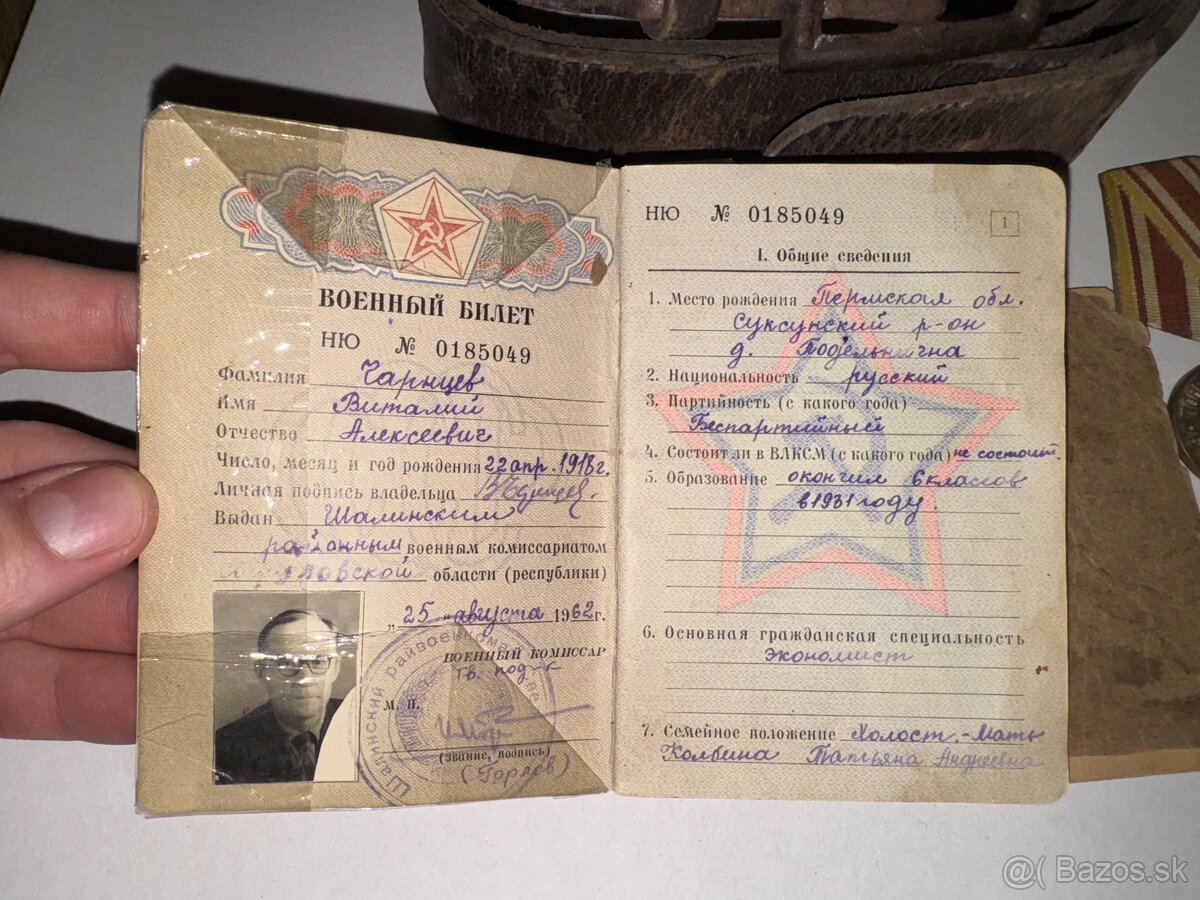 ВОЕННЫЙ БИЛЕТ
НЮ № 0185049
Фамилия Чарнцев
Имя Виталий
Отчество Алексеевич
Число, месяц и год рождения 22 апр. 1918 г.
Личная подпись владельца
Выдан Шалинским
районным военным комиссариатом
области (республики)
„25" августа 1962 г.
ВОЕННЫЙ КОМИССАР
гв. под-к
М. П.
(звание, подпись)
(Горлов)
Шалинский Райвоенкомат
НЮ № 0185049
1
I. Общие сведения
1. Место рождения Пермская обл.
Суксунский р-он
д.
2. Национальность русский
3. Партийность (с какого года)
Беспартийный
4. Состоит ли в ВЛКСМ (с какого года) не состоит.
5. Образование окончил 6 классов
в 1931 году.
6. Основная гражданская специальность
экономист
7. Семейное положение Холост.-Мать
Колбина Татьяна Андреевна
@( Bazos.sk